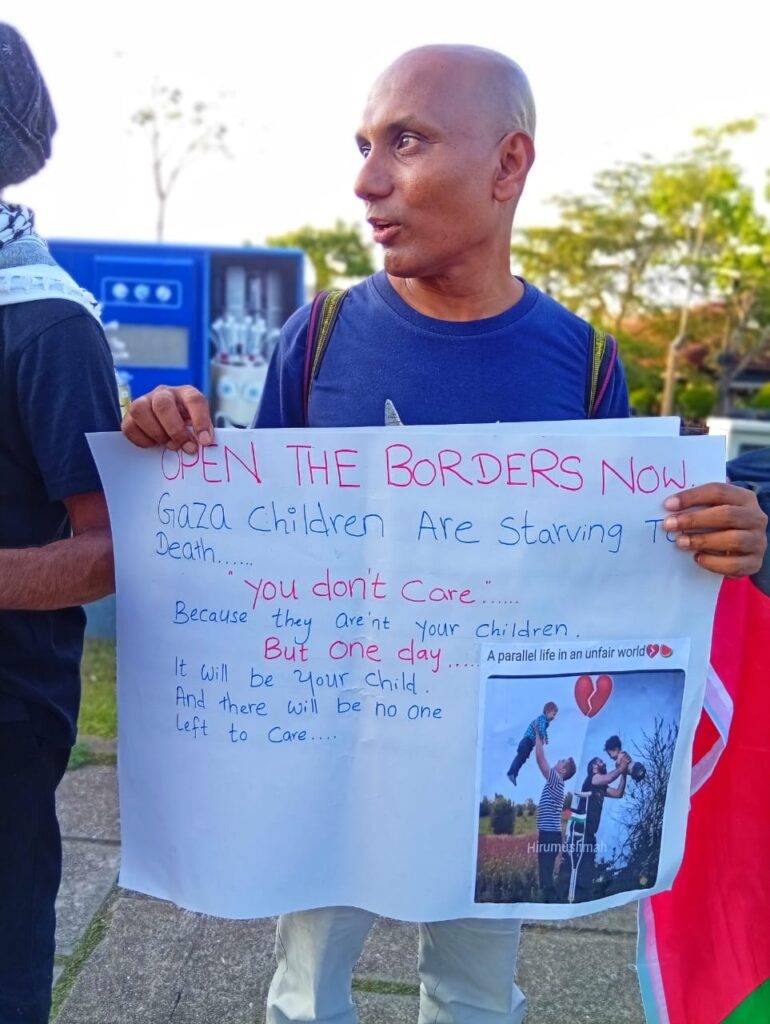 OPEN THE BORDERS NOW.
Gaza Children Are Starving To
Death......
"you don't care"......
Because they are'nt your children.
But one day.....
It will be your child.
And there will be no one
left to care....
A parallel life in an unfair world💔🍉
Hirumushmah